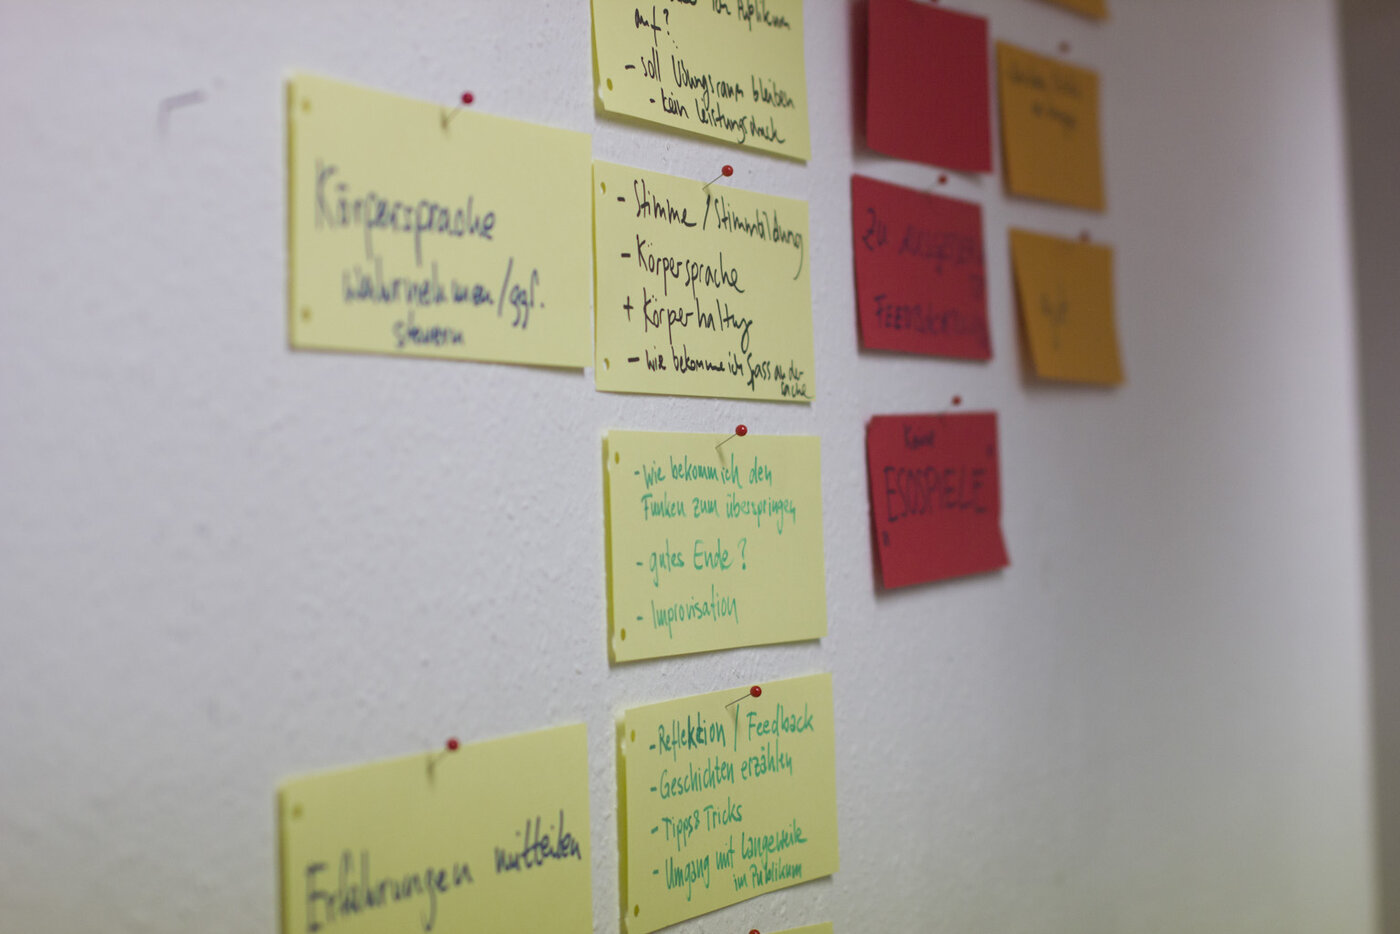 Körpersprache
wahrnehmen/ggf.
steuern
Erfahrungen mitteilen
ich Publikum
auf?
- soll Übungsraum bleiben
- kein Leistungsdruck
- Stimme / Stimmbildung
- Körpersprache
+ Körperhaltung
- wie bekomme ich Spass an der
Sache
- wie bekomm ich den
Funken zum überspringen
- gutes Ende?
- Improvisation
- Reflektion / Feedback
- Geschichten erzählen
- Tipps & Tricks
- Umgang mit Langeweile
im Publikum
Zu
FEEDBACK
Keine
"ESOSPIELE"